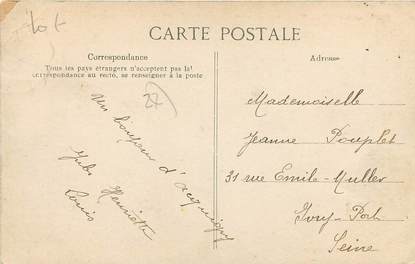 CARTE POSTALE
Correspondance
Tous les pays étrangers n'acceptent pas la
correspondance au recto, se renseigner à la poste
un bonjour d'acquigny
Jules Henriette
Louis
Adresse
Mademoiselle
Jeanne Pouplet
31 rue Emile-Muller
Ivry-Port
Seine